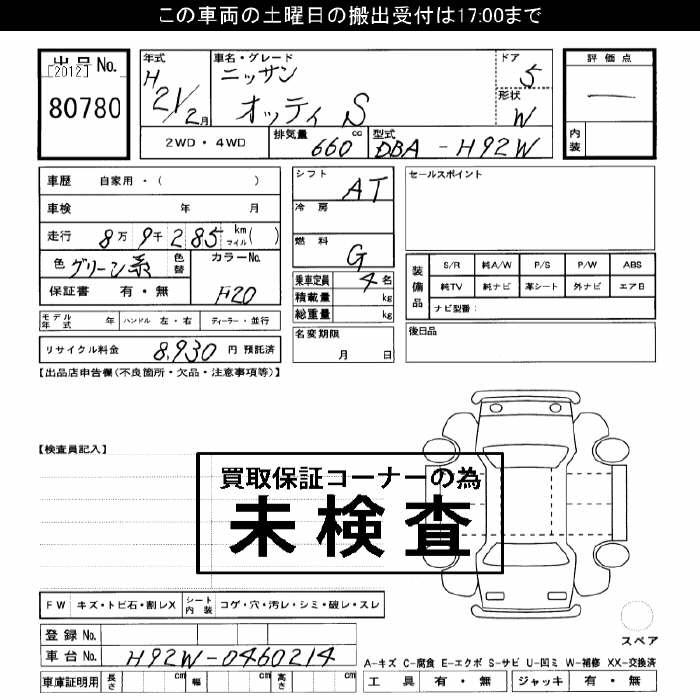 この車両の土曜日の搬出受付は17:00まで
出品No.
[2012]
80780
年式
H
21/2月
車名・グレード
ニッサン
オッティ S
ドア
5
形状
W
評価点
—
内装
2WD・4WD
排気量 660 cc
型式 DBA-H92W
車歴 自家用・( )
車検 年 月
走行 8万9千285 km マイル( )
色 グリーン系
色替
カラーNo.
F20
保証書 有・無
モデル年式 年 ハンドル 左・右 ディーラー・並行
リサイクル料金 8,930 円 預託済
シフト
AT
冷房
燃料
G
乗車定員 4名
積載量 kg
総重量 kg
名変期限
月 日
セールスポイント
装備品
S/R 純A/W P/S P/W ABS
純TV 純ナビ 革シート 外ナビ エアB
ナビ型番:
後日品
【出品店申告欄(不良箇所・欠品・注意事項等)】
【検査員記入】
買取保証コーナーの為
未検査
FW キズ・トビ石・割レX
シート内装 コゲ・穴・汚レ・シミ・破レ・スレ
登録No.
車台No. H92W-0460214
車庫証明用 長さ cm 幅 cm 高さ cm
スペア
A-キズ C-腐食 E-エクボ S-サビ U-凹ミ W-補修 XX-交換済
工具 有・無 ジャッキ 有・無